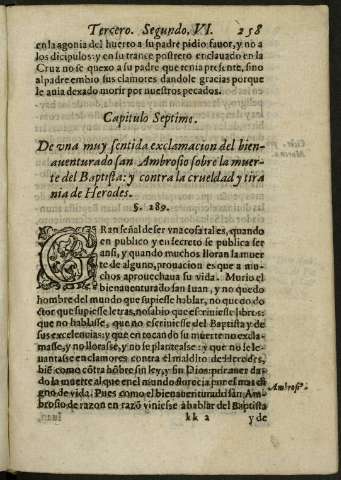 Tercero. Segundo, VI. 258
en la agonia del huerto a su padre pidio fauor, y no a
los dicipulos: y en su trance postrero enclauado en la
Cruz no se quexo a su padre que tenia presente, sino
al padre embio sus clamores dandole gracias porque
le auia dexado morir por nuestros pecados.
Capitulo Septimo.
De vna muy sentida exclamacion del bien-
auenturado san Ambrosio sobre la muer-
te del Baptista: y contra la crueldad y tira
nia de Herodes.
§. 289.
GRan señal de ser vna cosa tal es, quando
en publico y en secreto se publica ser
ansi, y quando muchos lloran la muer
te de alguno, prouacion es que a mu-
chos aprouechaua su vida. Murio el
bienauenturado san Iuan, y no quedo
hombre del mundo que supiesse hablar, no quedo do
ctor que supiesse letras, no sabio que escriuiesse libros:
que no hablasse, que no escriuiesse del Baptista y de
sus excelencias: y que en tocando su muerte no excla-
masse, y no llorasse, y no se plantease: y que no se le-
uantasse en clamores contra el maldito de Herodes,
biē como cōtra hōbre sin ley, y sin Dios: priuaner da-
do la muerte al que en el mundo florecia por el mas di
gno de vida. Pues como el bienauenturado san Am-
brosio de razon en razō viniesse à hablar del Baptista
Ambrosiº.
kk 2 y de